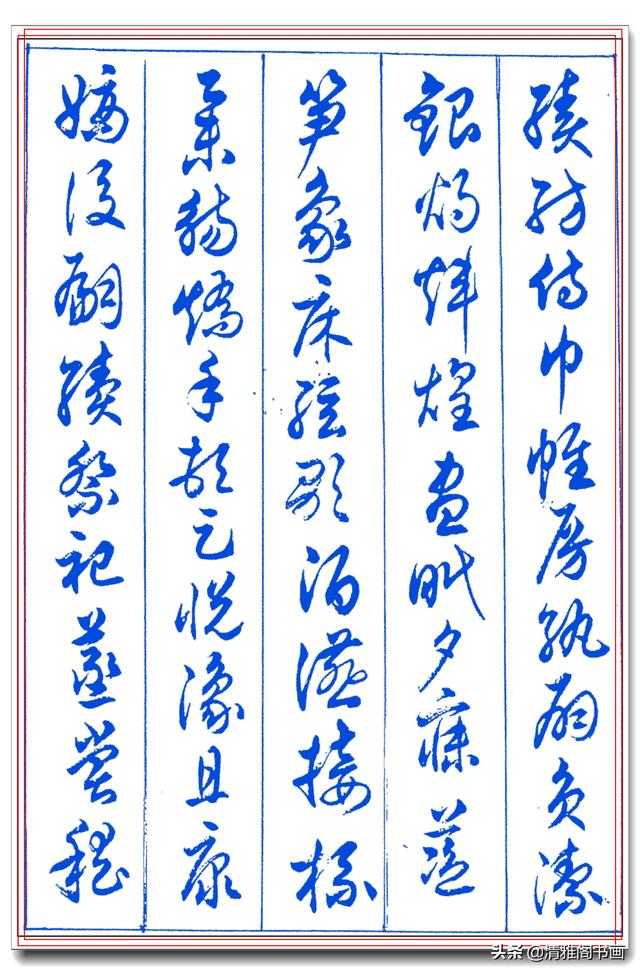 績紡侍巾帷房紈扇員潔
銀燭煒煌晝眠夕寐藍
笋象床絃歌酒讌接杯
舉觴矯手頓足悅豫且康
嫡後嗣續祭祀蒸嘗稽
头条 @清雅阁书画